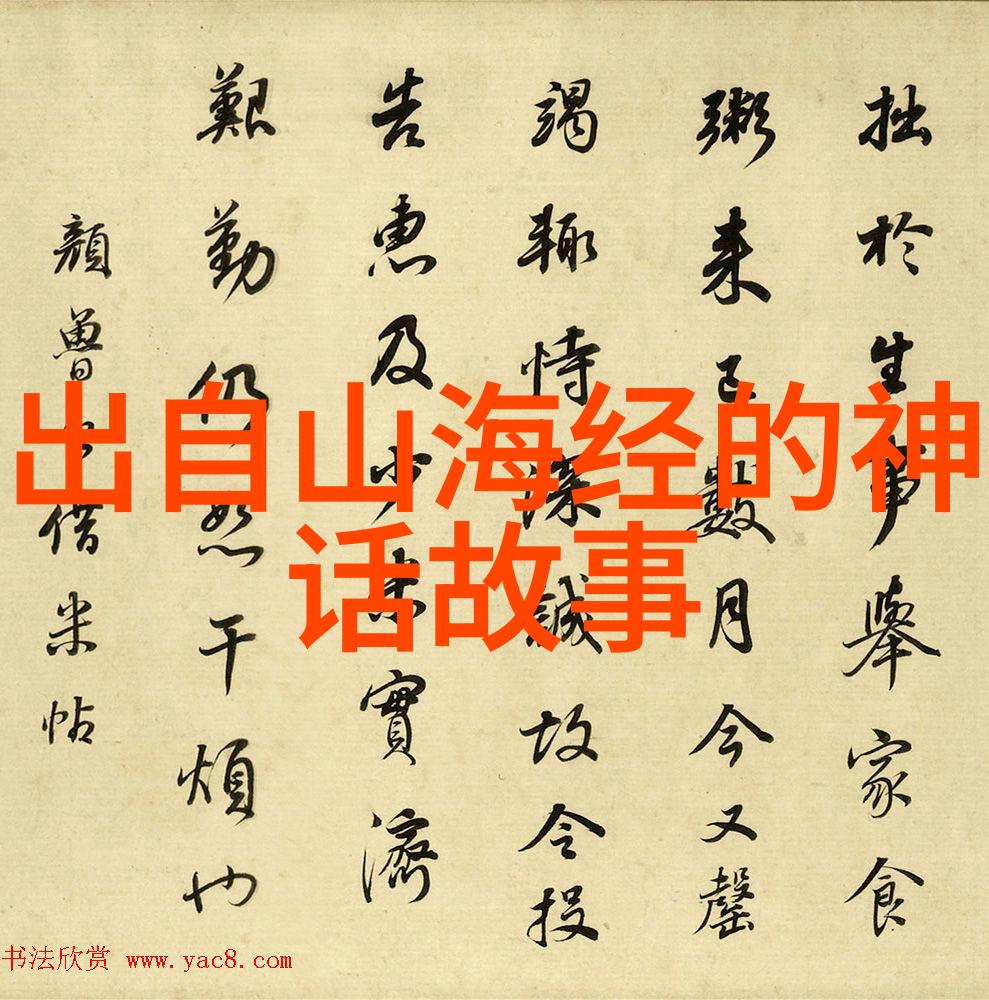 出自山海经的神
话故事
拙於生事舉家食
粥来已數月今又罄
竭輙恃深誠故令投
告惠及少米實濟
艱勤仍恕干煩也
顔魯公借米帖
书法欣赏 www.yac8.com